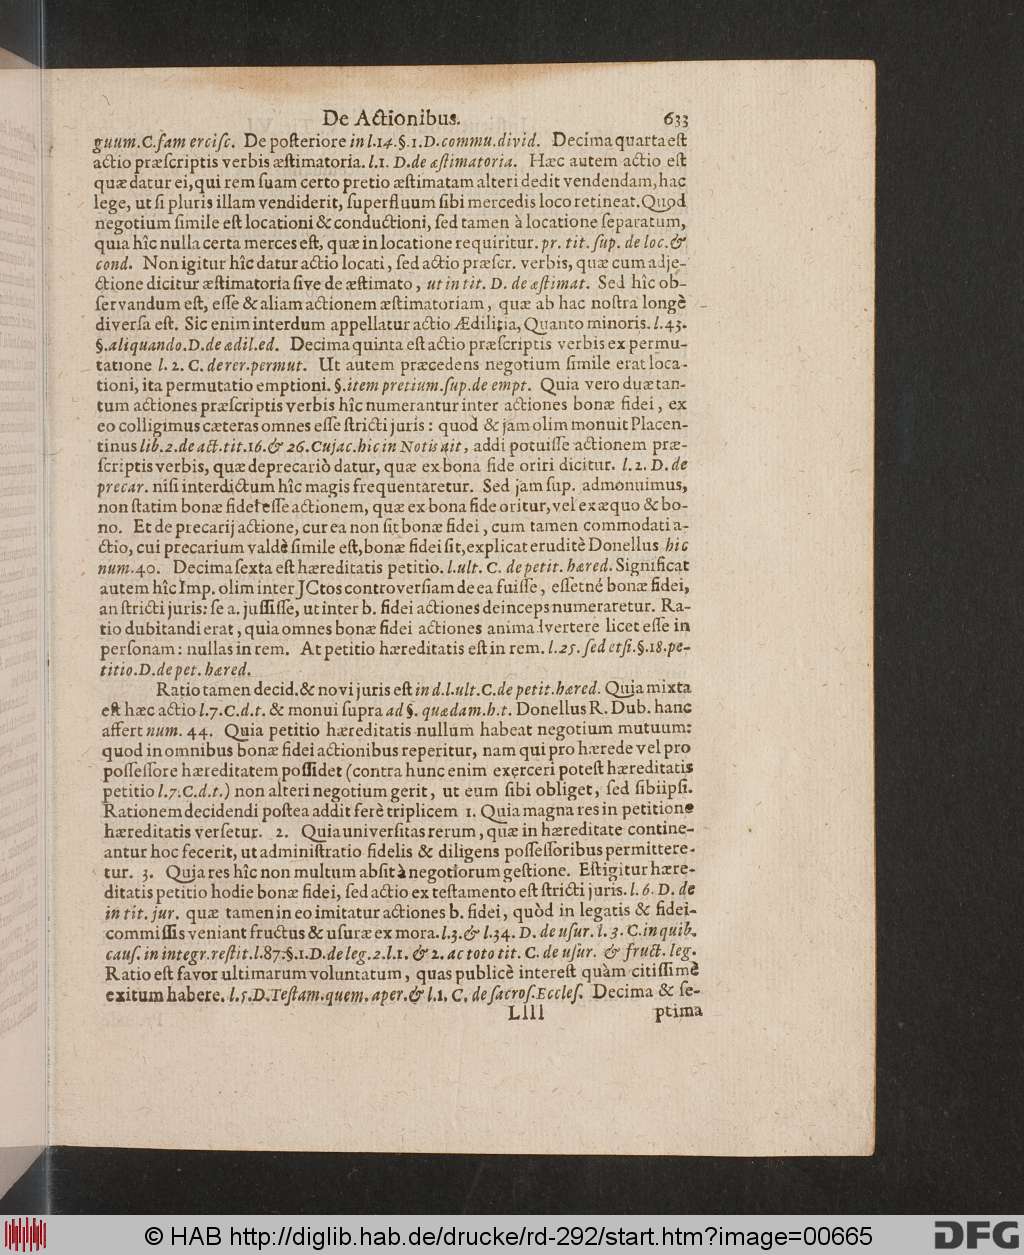 De Actionibus. 633
guum.C.fam ercisc. De posteriore in l.14.§.1.D.commu.divid. Decima quarta est
actio præscriptis verbis æstimatoria. l.1. D.de æstimatoria. Hæc autem actio est
quæ datur ei, qui rem suam certo pretio æstimatam alteri dedit vendendam, hac
lege, ut si pluris illam vendiderit, superfluum sibi mercedis loco retineat. Quod
negotium simile est locationi & conductioni, sed tamen à locatione separatum,
quia hîc nulla certa merces est, quæ in locatione requiritur. pr. tit. sup. de loc. &
cond. Non igitur hîc datur actio locati, sed actio præscr. verbis, quæ cum adje-
ctione dicitur æstimatoria sive de æstimato, ut in tit. D. de æstimat. Sed hîc ob-
servandum est, esse & aliam actionem æstimatoriam, quæ ab hac nostra longè
diversa est. Sic enim interdum appellatur actio Ædilitia, Quanto minoris. l.43.
§.aliquando.D.de ædil.ed. Decima quinta est actio præscriptis verbis ex permu-
tatione l. 2. C. de rer.permut. Ut autem præcedens negotium simile erat loca-
tioni, ita permutatio emptioni. §.item pretium.sup.de empt. Quia vero duæ tan-
tum actiones præscriptis verbis hîc numerantur inter actiones bonæ fidei, ex
eo colligimus cæteras omnes esse stricti juris: quod & jam olim monuit Placen-
tinus lib.2.de act.tit.16.& 26.Cujac.hic in Notis ait, addi potuisse actionem præ-
scriptis verbis, quæ de precariò datur, quæ ex bona fide oriri dicitur. l.2. D. de
precar. nisi interdictum hîc magis frequentaretur. Sed jam sup. admonuimus,
non statim bonæ fidei esse actionem, quæ ex bona fide oritur, vel ex æquo & bo-
no. Et de precarij actione, cur ea non sit bonæ fidei, cum tamen commodati a-
ctio, cui precarium valdè simile est, bonæ fidei sit, explicat eruditè Donellus hic
num.40. Decima sexta est hæreditatis petitio. l.ult. C. de petit. hæred. Significat
autem hîc Imp. olim inter JCtos controversiam de ea fuisse, essetné bonæ fidei,
an stricti juris: se a. jussisse, ut inter b. fidei actiones deinceps numeraretur. Ra-
tio dubitandi erat, quia omnes bonæ fidei actiones animadvertere licet esse in
personam: nullas in rem. At petitio hæreditatis est in rem. l.25. sed etsi.§.18.pe-
titio.D.de pet. hæred.
Ratio tamen decid. & novi juris est in d.l.ult.C.de petit.hæred. Quia mixta
est hæc actio l.7.C.d.t. & monui supra ad §. quædam.h.t. Donellus R. Dub. hanc
affert num. 44. Quia petitio hæreditatis nullum habeat negotium mutuum:
quod in omnibus bonæ fidei actionibus reperitur, nam qui pro hærede vel pro
possessore hæreditatem possidet (contra hunc enim exerceri potest hæreditatis
petitio l.7.C.d.t.) non alteri negotium gerit, ut eum sibi obliget, sed sibi ipsi.
Rationem decidendi postea addit ferè triplicem 1. Quia magna res in petitione
hæreditatis versetur. 2. Quia universitas rerum, quæ in hæreditate contine-
antur hoc fecerit, ut administratio fidelis & diligens possessoribus permittere-
tur. 3. Quia res hîc non multum absit à negotiorum gestione. Est igitur hære-
ditatis petitio hodie bonæ fidei, sed actio ex testamento est stricti juris. l.6. D. de
in tit. jur. quæ tamen in eo imitatur actiones b. fidei, quòd in legatis & fidei-
commissis veniant fructus & usuræ ex mora. l.3.& l.34. D. de usur. l. 3. C.in quib.
caus. in integr.restit.l.87.§.1.D.de leg.2.l.1. & 2. ac toto tit. C. de usur. & fruct. leg.
Ratio est favor ultimarum voluntatum, quas publicè interest quàm citissimè
exitum habere. l.5.D.Testam.quem.aper.& l.1. C. de sacros.Eccles. Decima & se-
Llll ptima
© HAB http://diglib.hab.de/drucke/rd-292/start.htm?image=00665
DFG